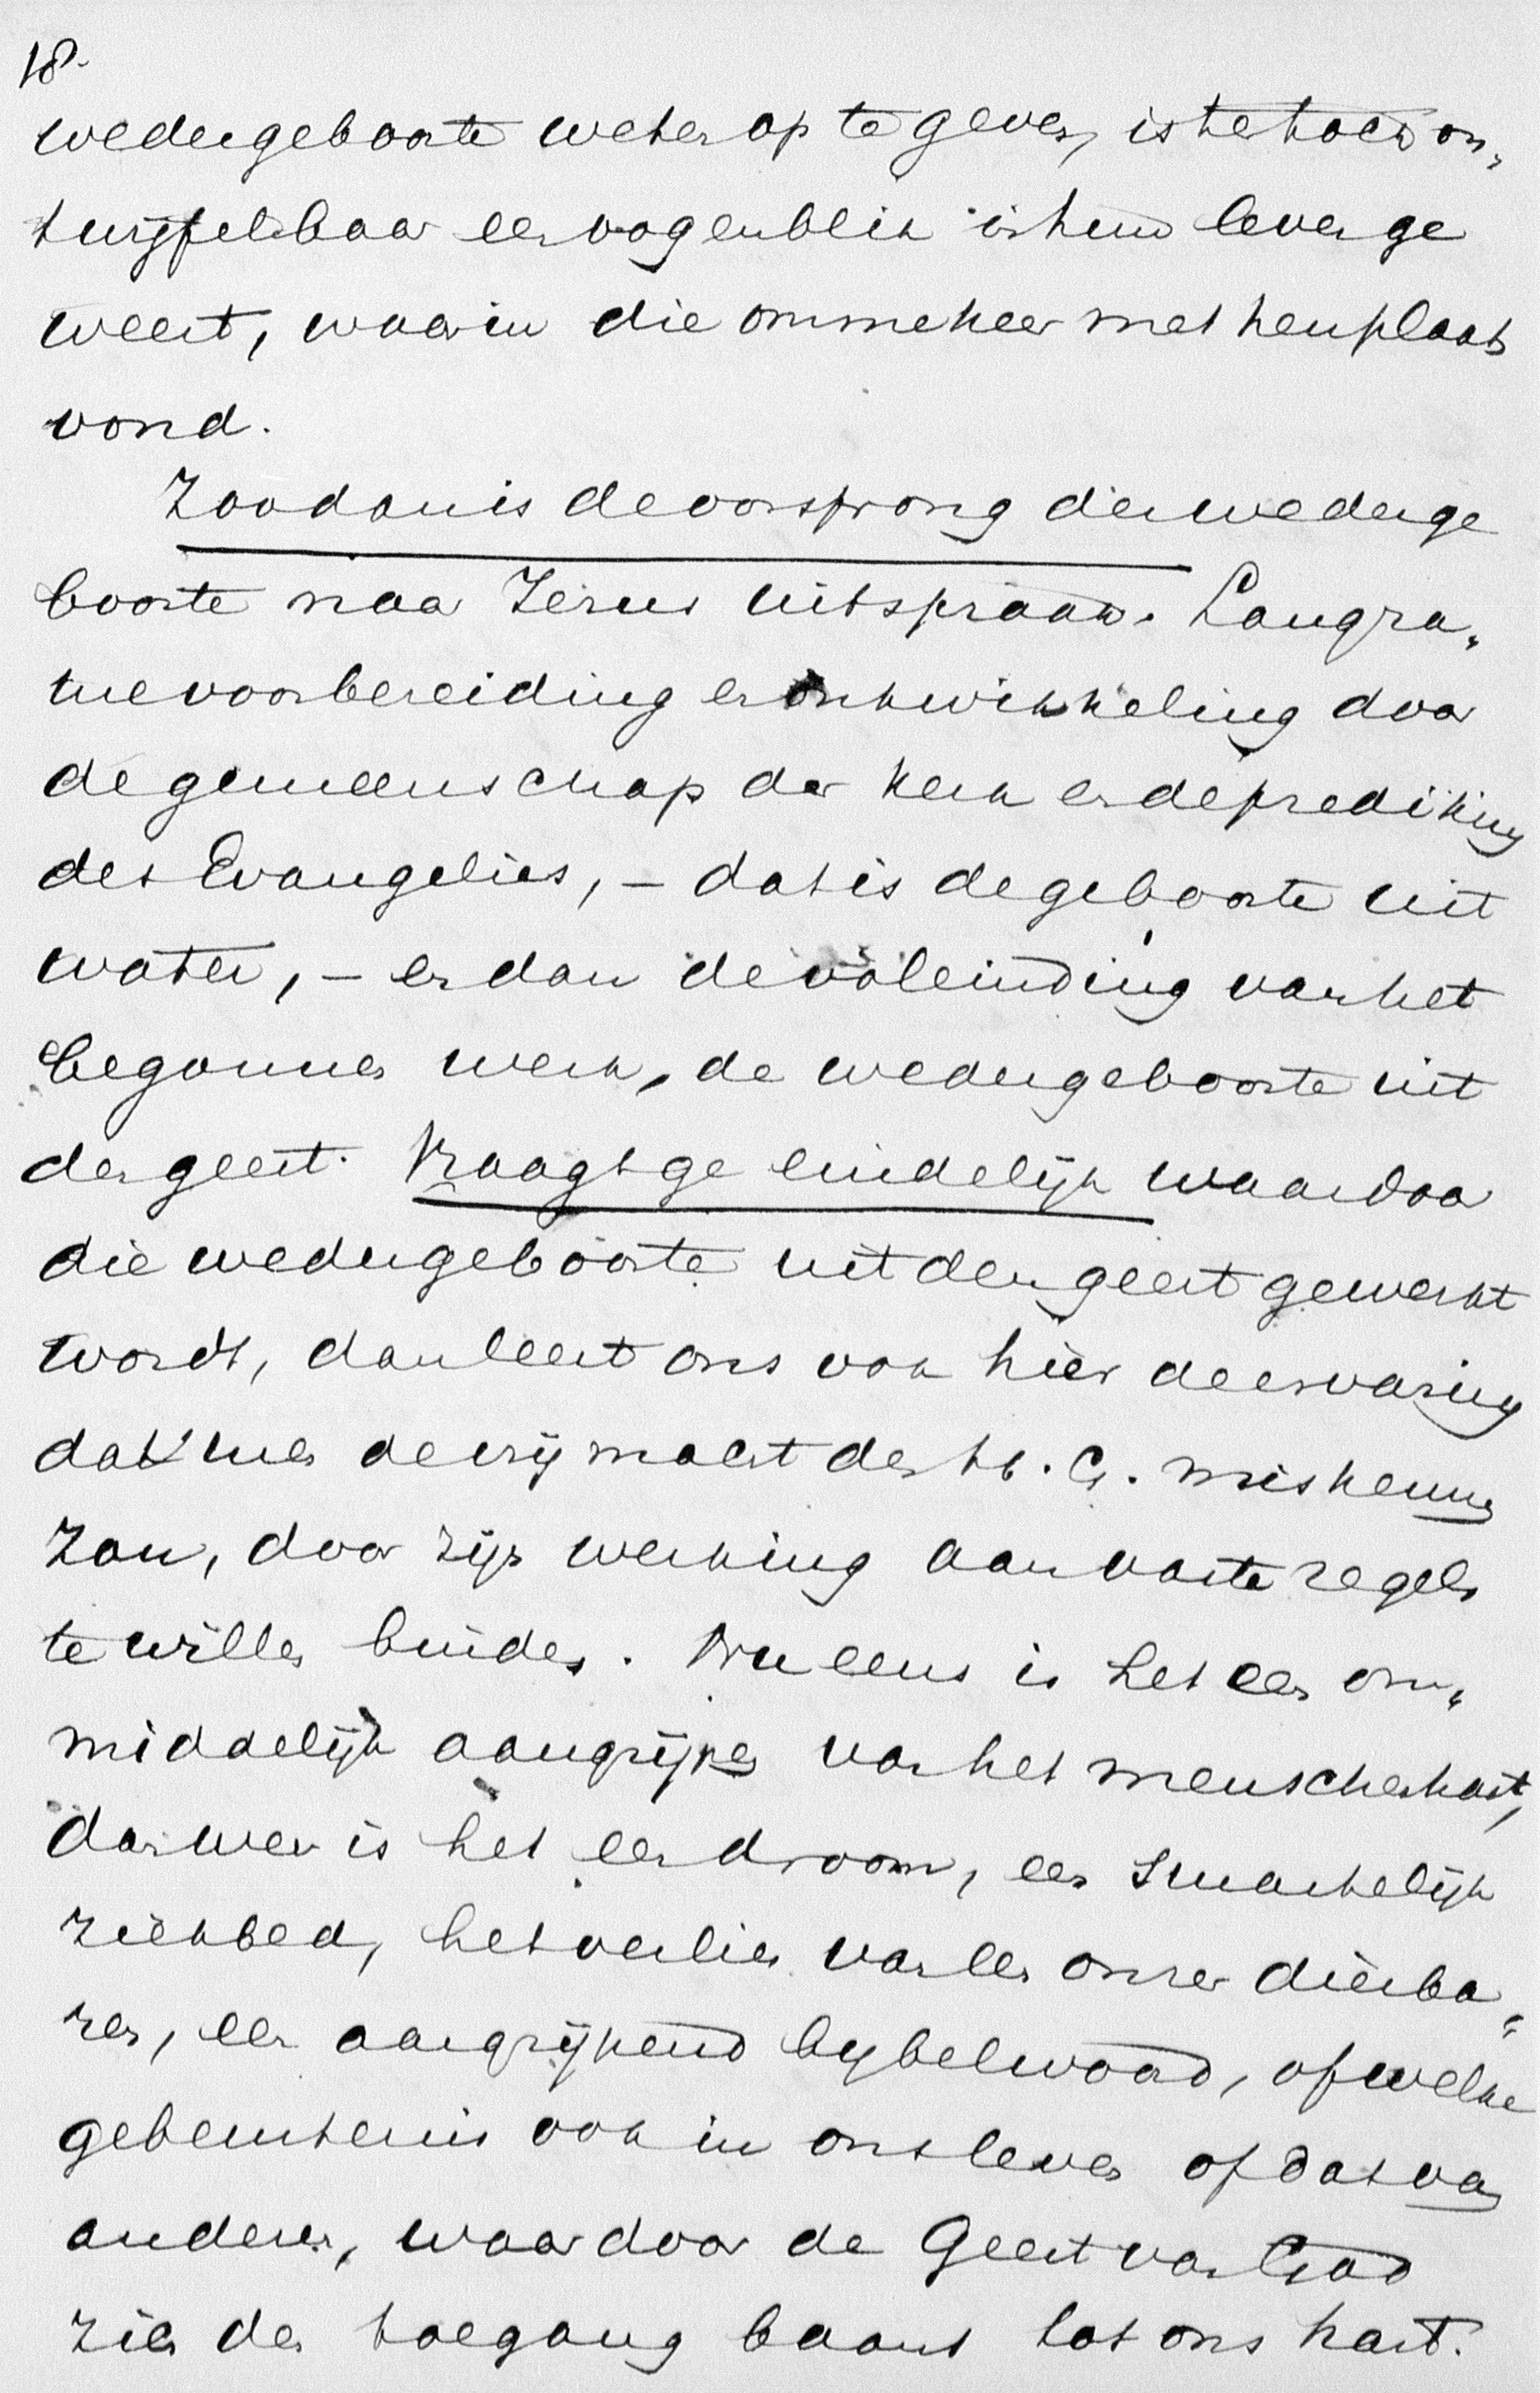 18.
wedergeboorte weten op te geven, is er toch on„
twijfelbaar een oogenblik in hun leven ge
weest, waarin die ommekeer met hen plaats
vond.
Zoodanis de oorsprong der wederge
boorte naar Jezus uitspraak. Langza„
me voorbereiding en ontwikkeling door
de gemeenschap der kerk en de prediking
des Evangelies, – dat is de geboorte uit
water, – en dan de voleinding van het
begonnen werk, de wedergeboorte uit
den geest. Vraagt ge eindelijk waardoor
die wedergeboorte uit den geest gewerkt
wordt, dan leert ons ook hier de ervaring
dat men de vrijmacht des H. G. miskennen
zou, door zijn werking aan vaste regels
te willen binden. Nu eens is het een on„
middelijk aangrijpen van het menschenhart,
dan weer is het een droom, een smartelijk
ziekbed, het verlies van een onzer dierba„
ren, een aangrijpend bybelwoord, of welke
gebeurtenis ook in ons leven of dat van
anderen, waardoor de Geest van God
zich den toegang baant tot ons hart.